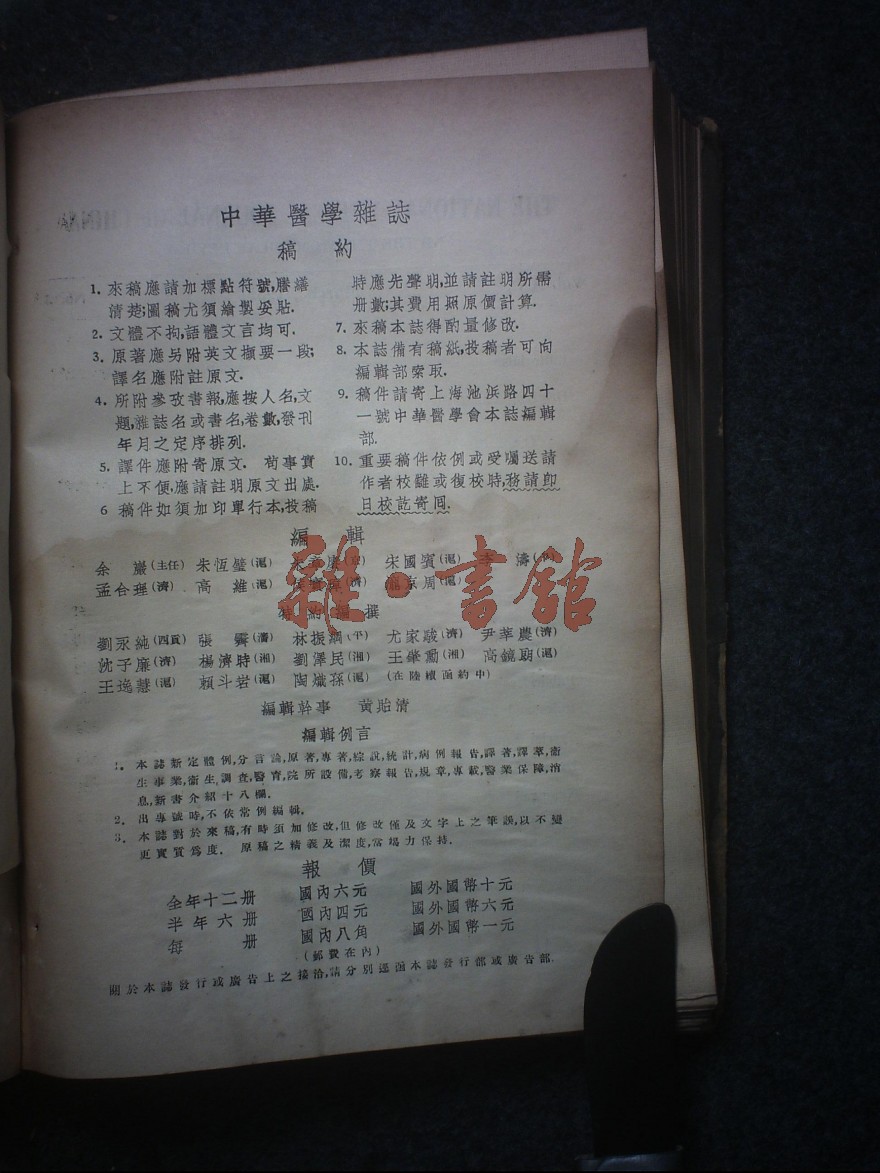 中華醫學雜誌
稿約
1. 來稿應請加標點符號,謄繕
清楚;圖稿尤須繪製妥貼.
2. 文體不拘,語體文言均可.
3. 原著應另附英文撮要一段;
譯名應附註原文.
4. 所附參攷書報,應按人名,文
題,雜誌名或書名,卷數,發刊
年月之定序排列.
5. 譯件應附寄原文. 苟事實
上不便,應請註明原文出處.
6 稿件如須加印單行本,投稿
時應先聲明,並請註明所需
册數;其費用照原價計算.
7. 來稿本誌得酌量修改.
8. 本誌備有稿紙,投稿者可向
編輯部索取.
9. 稿件請寄上海池浜路四十
一號中華醫學會本誌編輯
部.
10. 重要稿件依例或受囑送請
作者校讎或復校時,務請卽
日校訖寄囘.
編輯
余巖(主任) 朱恆璧(滬) 宋國賓(滬) 李濤(平)
孟合理(濟) 高維(滬)
特約撰
劉永純(四貢) 張霽(瀋) 林振綱(平) 尤家駿(濟) 尹莘農(濟)
沈子廉(濟) 楊濟時(湘) 劉澤民(湘) 王肇勳(湘) 高鏡朗(滬)
王逸慧(滬) 賴斗岩(滬) 陶熾孫(滬) (在陸續函約中)
編輯幹事 黃貽清
編輯例言
1. 本誌新定體例,分言論,原著,專著,綜說,統計,病例報告,譯著,譯萃,衞
生事業,衞生調查,醫育,院所設備,考察報告,規章,專載,醫業保障,消
息,新書介紹十八欄.
2. 出專號時,不依常例編輯.
3. 本誌對於來稿,有時須加修改,但修改僅及文字上之筆誤,以不變
更實質爲度. 原稿之精義及潔度,當竭力保持.
報價
全年十二册 國內六元 國外國幣十元
半年六册 國內四元 國外國幣六元
每册 國內八角 國外國幣一元
(郵費在內)
關於本誌發行或廣告上之接洽,請分別逕函本誌發行部或廣告部.
雜·書館